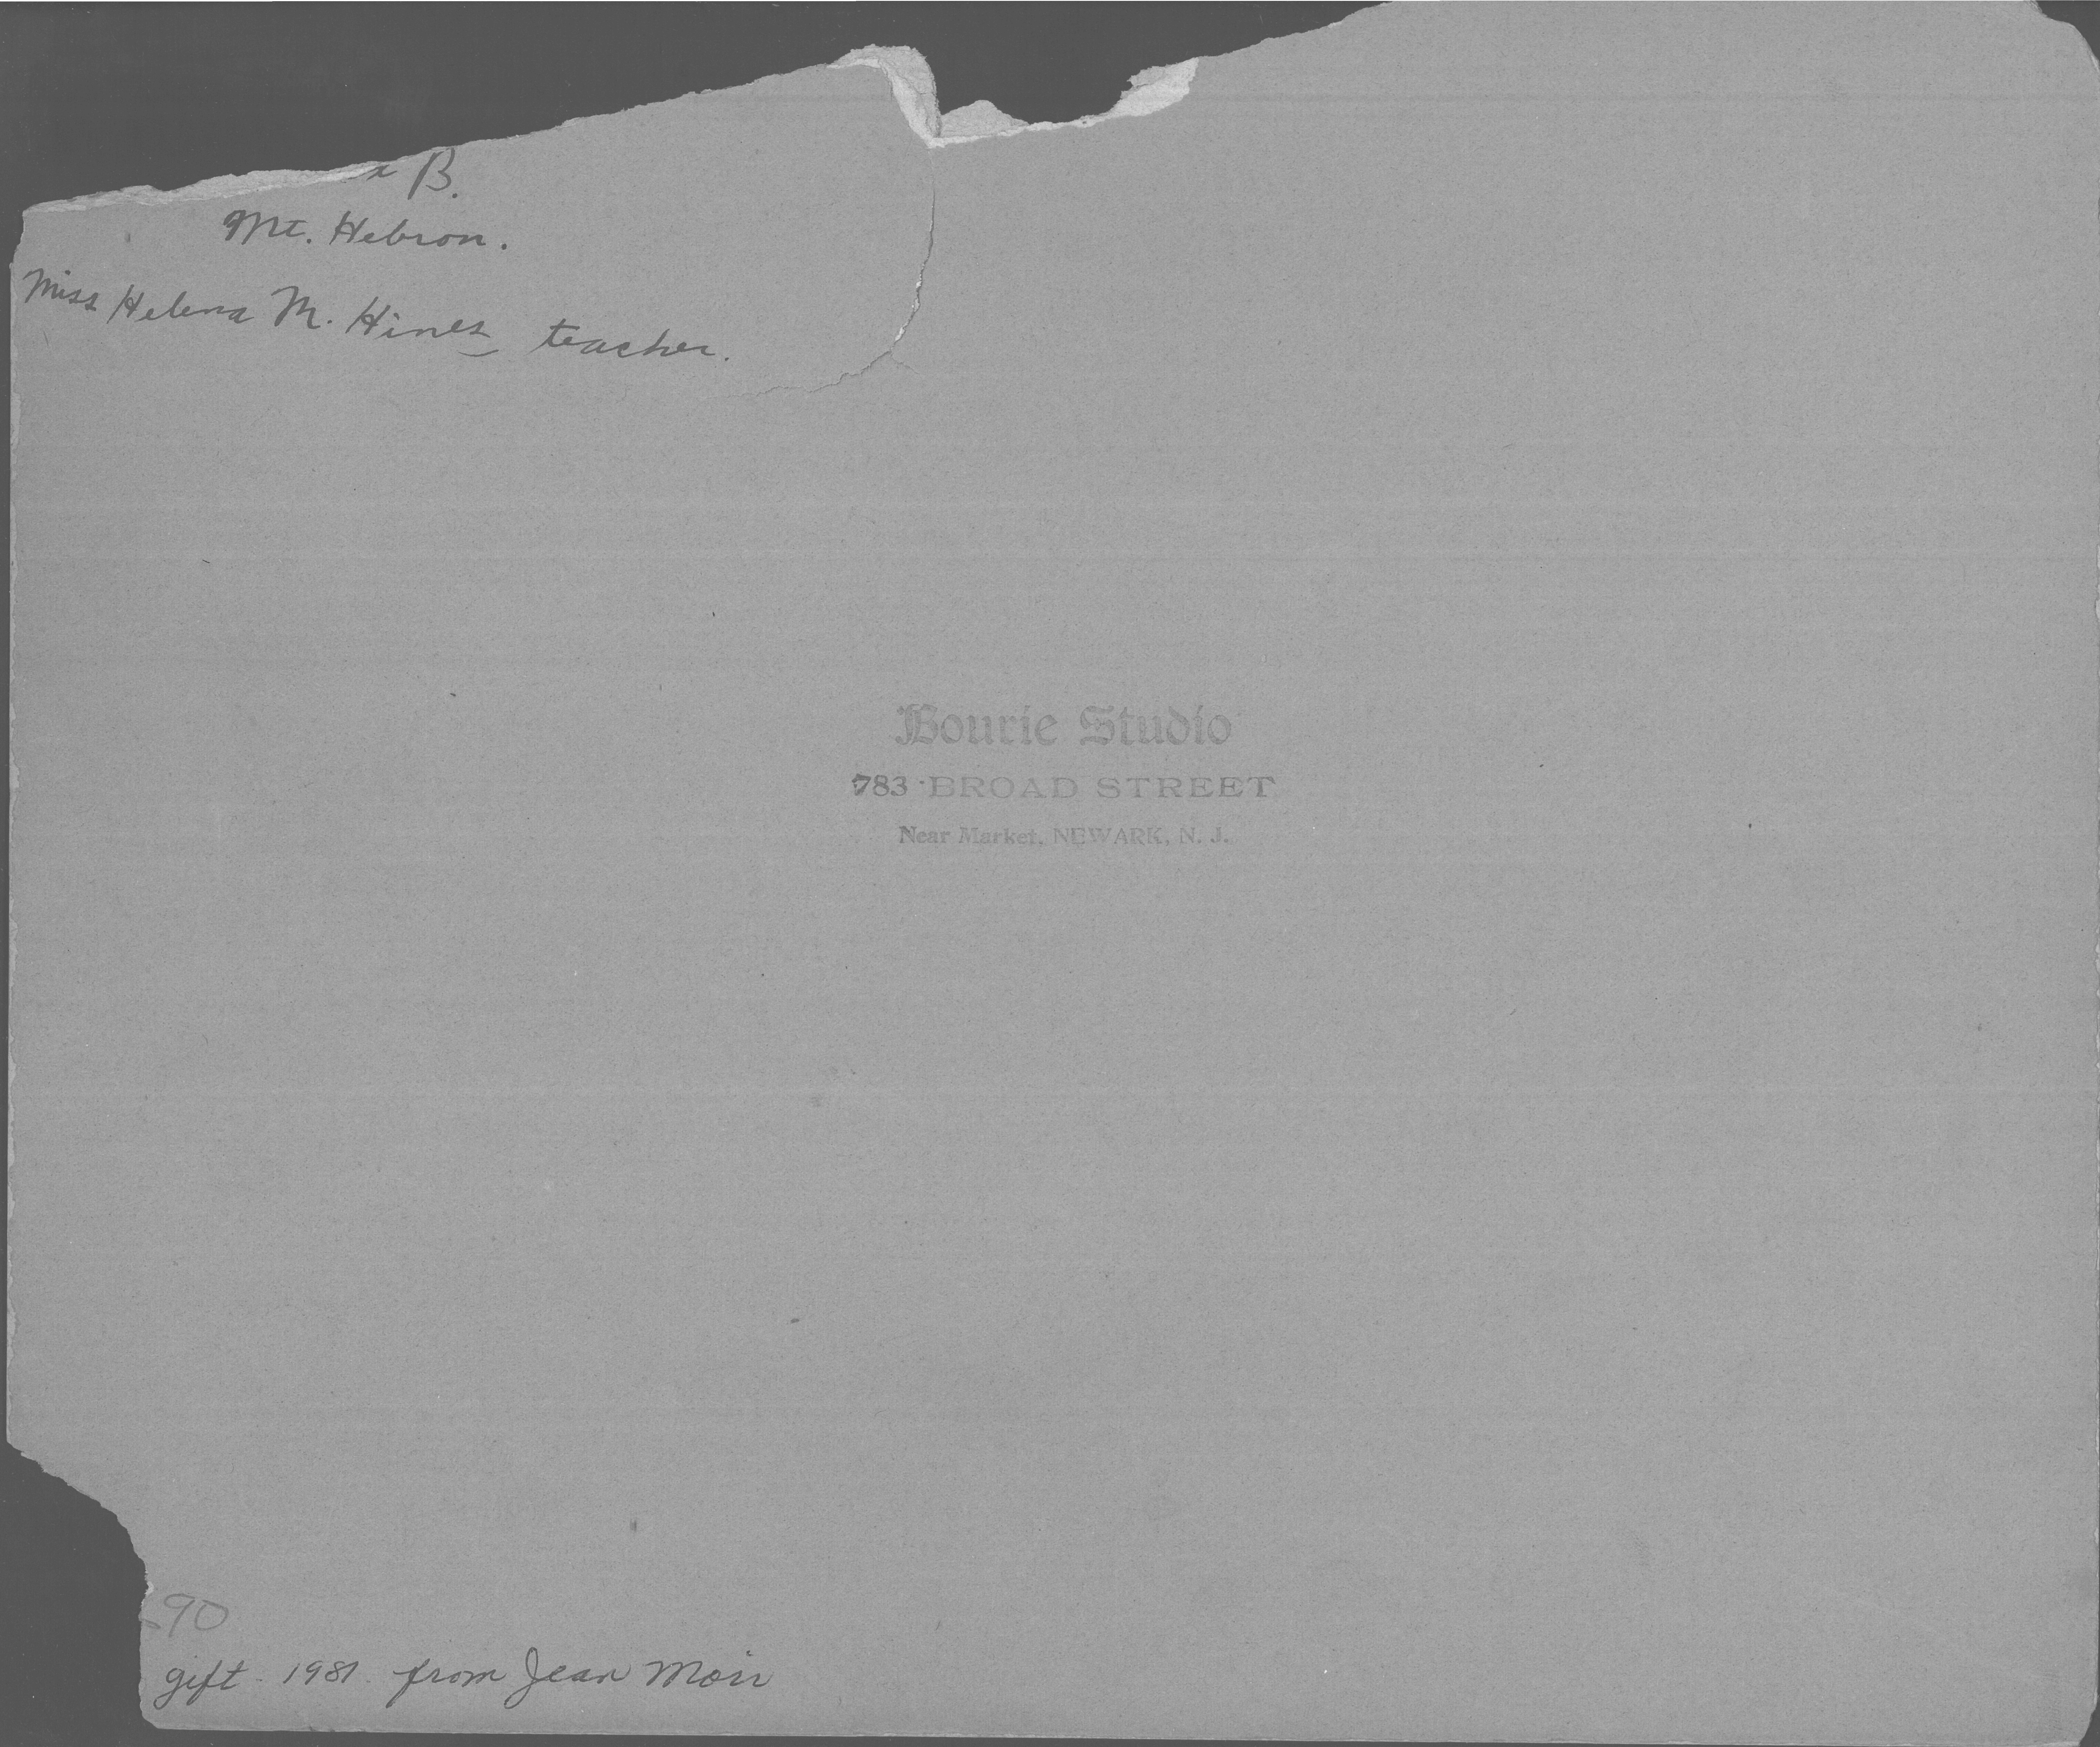 B.
Mt. Hebron.
Miss Helena M. Hines teacher.
Bourie Studio
783 BROAD STREET
Near Market, NEWARK, N. J.
90
gift - 1981 from Jean Moir